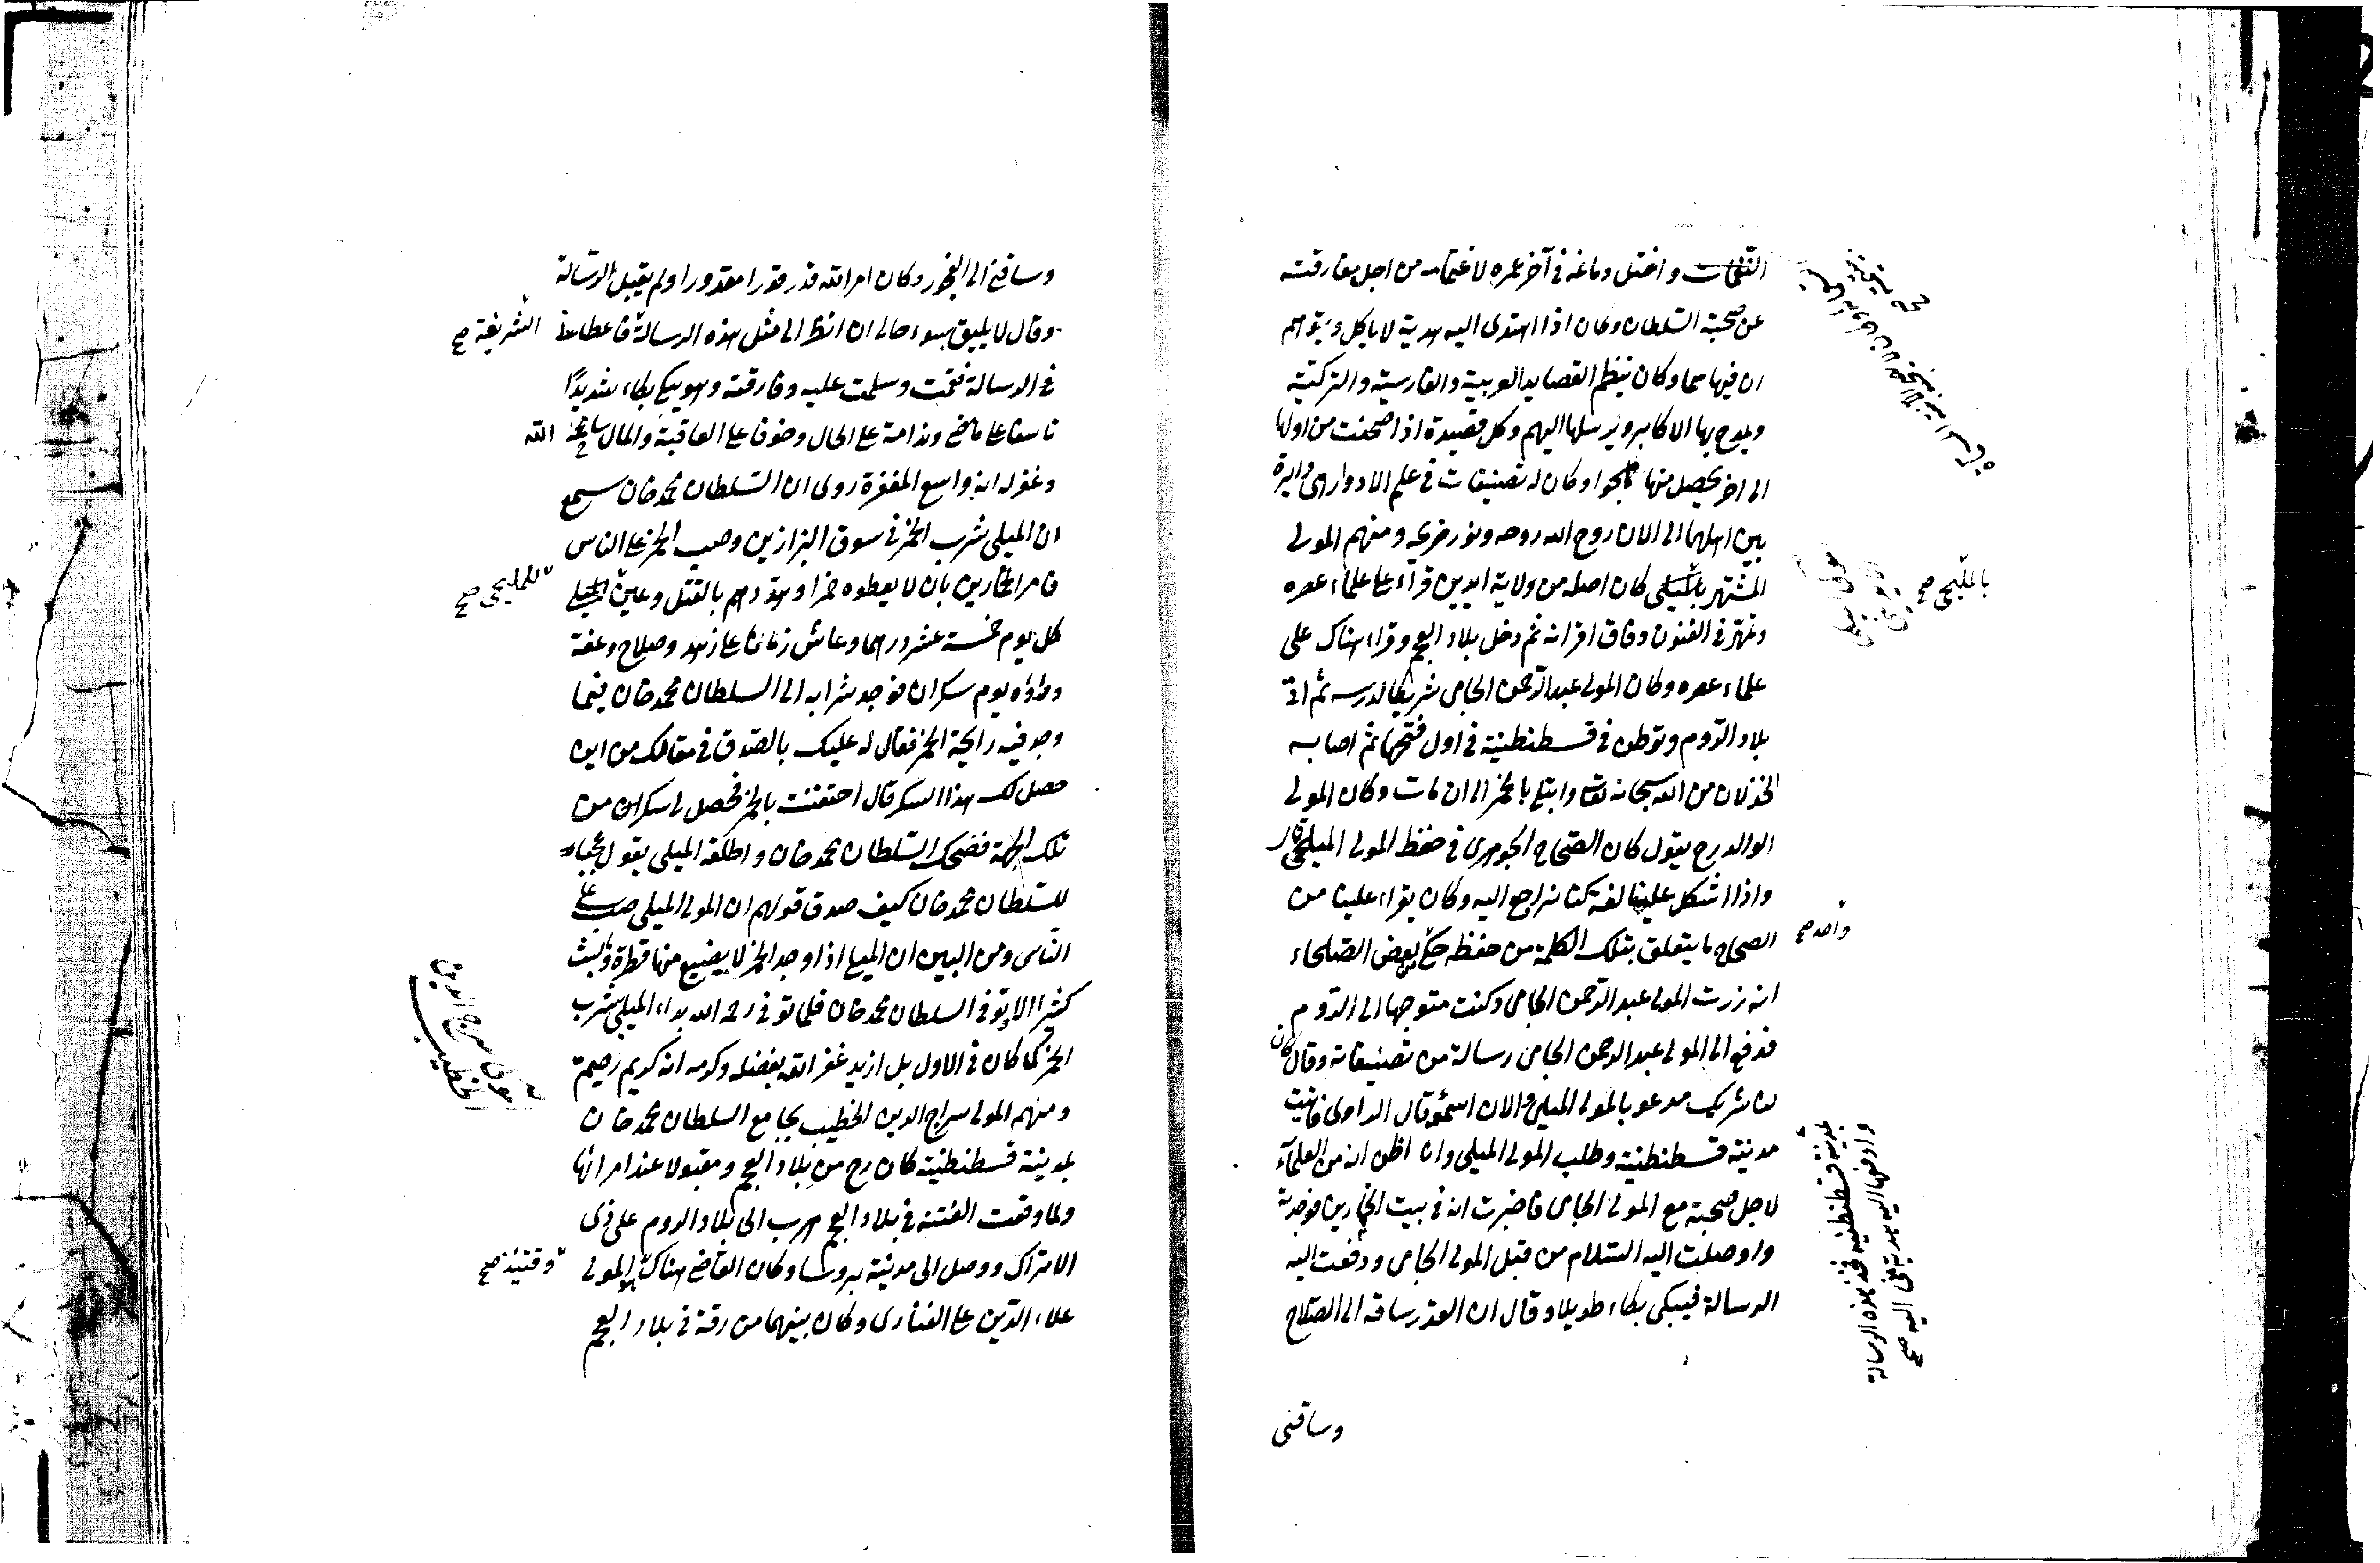 النغمات واختل دماغه فى آخر عمره لاغتمامه من اجل مفارقته
عن صحبة السلطان وكان اذا اهتدى اليه هدية لا ياكل ويتوهم
ان فيها سما وكان ينظم القصايد العربية والفارسية والتركية
ويمدح بها الاكابر ويرسلها اليهم وكل قصيدة اذا صحفت من اولها
الى اخر يحصل منها هجوا وكان له تصنيفات فى علم الادوار هى دايرة
بين اهلها الى الان روح الله روحه ونور ضريحه ومنهم المولى
المشتهر كان اصله من ولاية ايدين قراء على علماء عصره
وتمهر فى الفنون وفاق اقرانه ثم دخل بلاد العجم وقراء هناك على
علماء عصره وكان المولى عبد الرحمن الجامى شريكا لدرسه ثم اتى
بلاد الروم وتوطن فى قسطنطينية فى اول فتحها ثم اصابه
الخذلان من الله سبحانه وتعالى وابتلى بالخمر الى ان مات وكان المولى
الوالد رح يقول كان الصحاح الجوهرى فى حفظ المولى المليحى
واذا اشكل علينا لغة كنا نراجع اليه وكان يقراء علينا من
الصحاح ما يتعلق بتلك الكلمة من حفظه حكى بعض الصلحاء
انه زرت المولى عبد الرحمن الجامى وكنت متوجها الى الروم
فدفع الى المولى عبد الرحمن الجامى رسالة من تصنيفاته وقال كان
لنا شريك مدعو بالمولى المليحى والان اسمع قال الراوى فاتيت
مدينة قسطنطينية وطلب المولى المليحى وانا اظن انه من العلماء
لاجل صحبته مع المولى الجامى فاخبرت انه فى بيت الخمارين فوجدته
واوصلت اليه السلام من قبل المولى الجامى ودفعت اليه
الرسالة فيبكى بكاء طويلا وقال ان القدر ساقه الى الصلاح
وساقنى
بالمليحى صح
واحد صح
بمدينة قسطنطينية فخذ هذه الرسالة
وادفعها اليه هدية منى اليه صح
وساقنى الى الفجور وكان امر الله قدر قدرا مقدورا ولم يقبل الرسالة
وقال لا يليق بسوء حالى ان انظر الى مثل هذه الرسالة فاعطانى
الشريفة صح
فى الرسالة فقمت وسلمت عليه وفارقته وهو يبكى بكاء شديدا
تاسفا على ما مضى وندامة على الحال وخوفا على العاقبة والمال سامحه الله
وغفر له انه واسع المغفرة روى ان السلطان محمد خان سمع
ان المليحى شرب الخمر فى سوق البزازين وصب الخمر على الناس
فامر الخمارين بان لا يعطوه خمرا وهددهم بالقتل وعين
للمليحى صح
كل يوم خمسة عشر درهما وعاش زمانا على زهد وصلاح وعفة
وراوه يوم سكران فوجد شرابه الى السلطان محمد خان فيما
وجد فيه رايحة الخمر فقال له عليك بالصدق فى مقالك من اين
حصل لك هذا السكر قال احتقنت بالخمر فحصل لى سكران من
تلك الجهة فضحك السلطان محمد خان واطلقه المليحى يقول عجبا
للسلطان محمد خان كيف صدق قولهم ان المولى المليحى صب على
الناس ومن البين ان المليحى اذا وجد الخمر لا يضيع منها قطرة ولبث
كثيرا الا وتوفى السلطان محمد خان فلما توفى رحمه الله بداء المليحى بشرب
الخمر كما كان فى الاول بل ازيد غفر الله بفضله وكرمه انه كريم رحيم
ومنهم المولى سراج الدين الخطيب بجامع السلطان محمد خان
بمدينة قسطنطينية كان رح من بلاد العجم ومقبولا عند امرائها
ولما وقعت الفتنة فى بلاد العجم هرب الى بلاد الروم على زى
الاتراك ووصل الى مدينة بروسا وكان القاضى هناك المولى
وقتئذ صح
علاء الدين على الفنارى وكان بينهما من رقة فى بلاد العجم
مولى سراج الدين
الخطيب